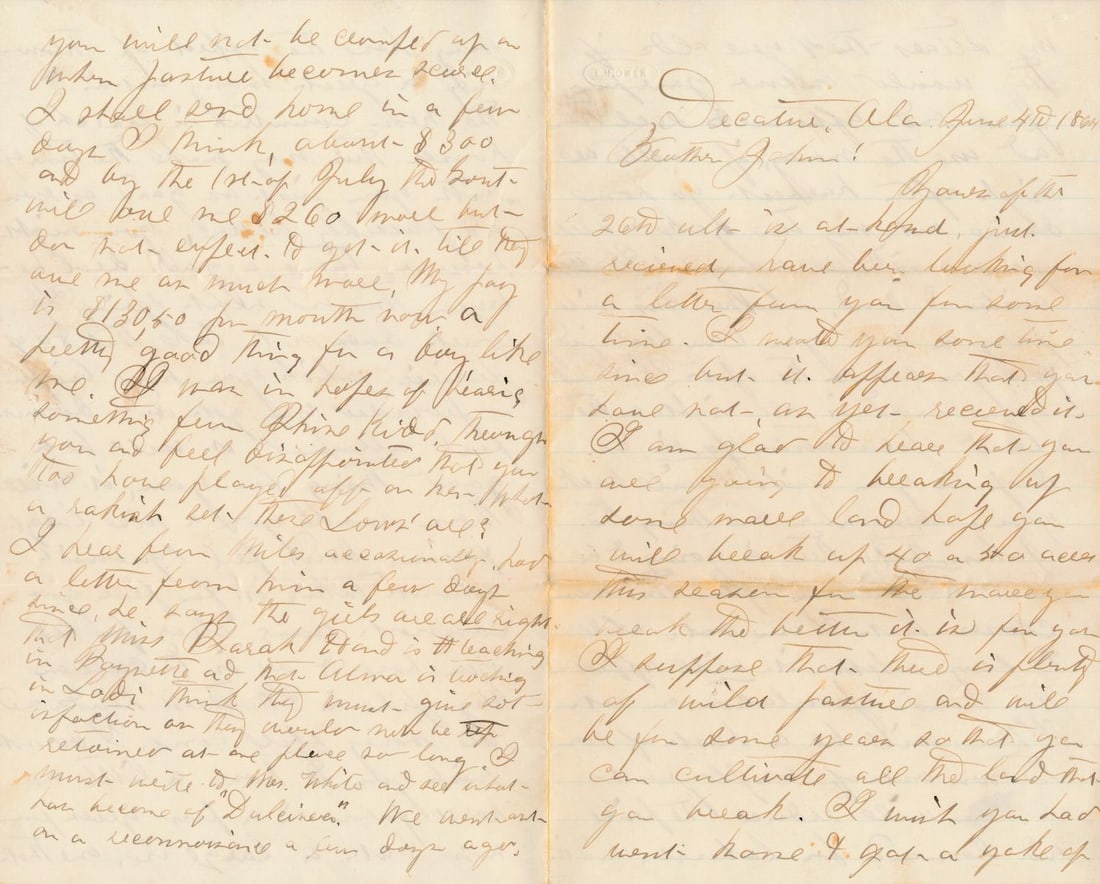 Decatur, Ala. June 4th 1864
Brother John!
Yours of the
26th ult- is at-hand, just-
recieved, have been looking for
a letter from you for some
time. I wrote you some time
since but- it- appears that you
have not- as yet- recieved it-
I am glad to hear that- you
are going to breaking up
some more land hope you
will break up 40 or 50 acres
this season for the more you
break the better it- is for you
I suppose that- there is plenty
of wild pasture and will
be for some years so that you
can cultivate all the land that-
you break. I wish you had
went- home & got- a yoke of
you will not- be cramped up on
when pasture becomes scarce.
I shall send home in a few
days I think, about- $300
and by the 1st- of July the Govt-
will owe me $260 more but-
do not- expect- to get- it- till they
owe me as much more, My pay
is $130,50 per month now a
pretty good thing for a boy like
me. I was in hopes of hearing
something from Phine Kidd, through
you and feel disappointed that you
too have played off on her- What-
a rakish set- these are?
I hear from Miles occasionally, had
a letter from him a few days
since, he says the girls are all right
that Miss Sarah Hand is teaching
in Fayette and that Alma is teaching
in Lodi think they must- give sat-
isfaction or they would not be
retained at- one place so long. I
must write to Mrs. White and see what-
has become of "Dulcinea." We went out-
on a reconnoisance a few days ago.